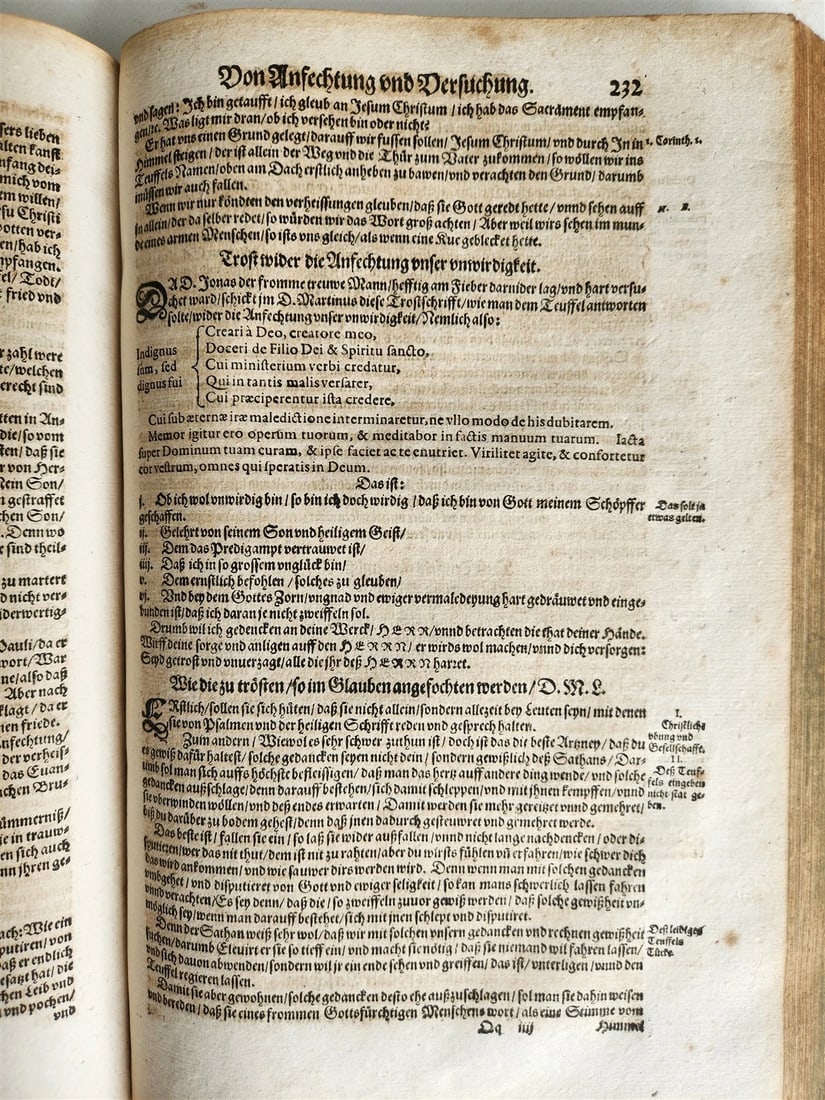 sers lieben
alten kanst
nfang dei-
mich vom
em willen/
su Christi
otten ver-
en/hab ich
npfangen.
fel/ Todt/
t fried vnd
r zahl were
te/welchen
erecht sind
tten in An-
die/so vom
ten/ daß sie
r von Her-
ein Son/
n gestraffet
chen Son/
. Denn wo
e sind theil-
zu martert
d nicht ver-
iderwertig-
Pauli/da er
wort/War
ne/also daß
Aber nach
klagt/da er
nen friede.
nfechtung/
der verheiß-
das Euan-
ichen Bru-
ümmerniß/
ie in trauw-
en sich auch
nn jhren ge-
ach: Wie ein
putiren/von
aß er endlich
esatzt hat/die
hen Leib vnd
vnd pochen/
vnd
Von Anfechtung vnd Versuchung. 232
vnd sagen: Ich bin getaufft/ich gleub an Jesum Christum/ich hab das Sacrament empfan-
gen/rc. Was ligt mir dran/ob ich versehen bin oder nicht?
Er hat vns einen Grund gelegt/darauff wir fussen sollen/Jesum Christum/vnd durch In in
1. Corinth. 1.
Himmel steigen/der ist allein der Weg vnd die Thür zum Vater zukommen/so wöllen wir ins
Teuffels Namen/oben am Dach erstlich anheben zu bawen/vnd verachten den Grund/darumb
müssen wir auch fallen.
Wenn wir nur köndten den verheissungen gleuben/daß sie Gott geredt hette/vnnd sehen auff
N. B.
in allein/der da selber redet/so würden wir das Wort groß achten/Aber weil wirs sehen im mun-
de eines armen Menschen/so ists vns gleich/als wenn eine Kue geblecket hette.
Trost wider die Anfechtung vnser vnwirdigkeit.
DA D. Jonas der fromme treuwe Mann/hefftig am Fieber darnider lag/vnd hart versu-
chet ward/schickt jm D. Martinus diese Trostschrifft/wie man dem Teuffel antworten
solte/wider die Anfechtung vnser vnwirdigkeit/Nemlich also:
Indignus
sum, sed
dignus fui
Creari à Deo, creatore meo,
Doceri de Filio Dei & Spiritu sancto,
Cui ministerium verbi credatur,
Qui in tantis malis versarer,
Cui præciperentur ista credere,
Cui sub æternæ iræ maledictione interminaretur, ne vllo modo de his dubitarem.
Memor igitur ero operum tuorum, & meditabor in factis manuum tuarum. Iacta
super Dominum tuam curam, & ipse faciet ac te enutriet. Viriliter agite, & confortetur
cor vestrum, omnes qui speratis in Deum.
Das ist:
j. Ob ich wol vnwirdig bin/so bin ich doch wirdig/daß ich bin von Gott meinem Schöpffer
geschaffen.
Das solt ja
etwas gelten.
ij. Gelehrt von seinem Son vnd heiligem Geist/
iij. Dem das Predigampt vertrauwet ist/
iiij. Daß ich in so grossem vnglück bin/
v. Dem ernstlich befohlen/solches zu gleuben/
vj. Vnd bey dem Gottes Zorn/vngnad vnd ewiger vermaledeyung hart gedräuwet vnd einge-
bunden ist/daß ich daran je nicht zweiffeln sol.
Drumb wil ich gedencken an deine Werck/HERR/vnnd betrachten die that deiner Hände.
Wirff deine sorge vnd anligen auff den HERRN/er wirds wol machen/vnnd dich versorgen:
Seyd getrost vnd vnuerzagt/alle die jhr deß HERRN harret.
Wie die zu trösten/so im Glauben angefochten werden/D. M. L.
ERstlich/sollen sie sich hüten/daß sie nicht allein/sondern allezeit bey Leuten seyn/mit denen
sie von Psalmen vnd der heiligen Schrifft reden vnd gesprech halten.
I.
Christliche
vbung vnd
Gesellschafft.
Zum andern/Wiewol es sehr schwer zuthun ist/doch ist das die beste Artzney/daß du
es gewiß dafür haltest/solche gedancken seyen nicht dein/sondern gewißlich deß Sathans/Dar-
umb sol man sich auffs höchste befleissigen/daß man das hertz auff andere ding wende/vnd solche
gedancken außschlage/denn darauff bestehen/sich damit schleppen/vnd mit ihnen kempffen/vnnd
sie vberwinden wöllen/vnd deß endes erwarten/Damit werden sie mehr gereitzet vnnd gemehret/
biß du darüber zu bodem gehest/denn daß jnen dadurch gesteuwret vnd gemehret werde.
II.
Deß Teuf-
fels eingeben
nicht stat ge-
ben.
Das beste ist/fallen sie ein/so laß sie wider außfallen/vnnd nicht lange nachdencken/oder di-
sputiren/wer das nit thut/dem ist nit zu rahten/aber du wirsts fühlen vñ erfahren/wie schwer dich
das wird ankommen/vnd wie sauwer dirs werden wird. Denn wenn man mit solchen gedancken
vmbgehet/vnd disputieret von Gott vnd ewiger seligkeit/so kan mans schwerlich lassen fahren
vnnd verachten/Es sey denn/daß die/so zweiffeln zuuor gewiß werden/daß solche gewißheit vn-
möglich sey/wenn man darauff bestehet/sich mit jnen schlept vnd disputiret.
Denn der Sathan weiß sehr wol/daß wir mit solchen vnsern gedancken vnd rechnen gewißheit
suchen/darumb Eleuirt er sie so tieff ein/vnd macht sie nötig/daß sie niemand wil fahren lassen/
vnd sich dauon abwenden/sondern wil jr ein ende sehen vnd greiffen/das ist/vnterligen/vnnd den
Teuffel regieren lassen.
Deß leidigen
Teuffels
Tücke.
Damit sie aber gewohnen/solche gedancken desto ehe außzuschlagen/sol man sie dahin weisen
vnd bereden/daß sie eines frommen Gottsfürchtigen Menschens wort/als eine Stimme vom
Qq iiij Himmel